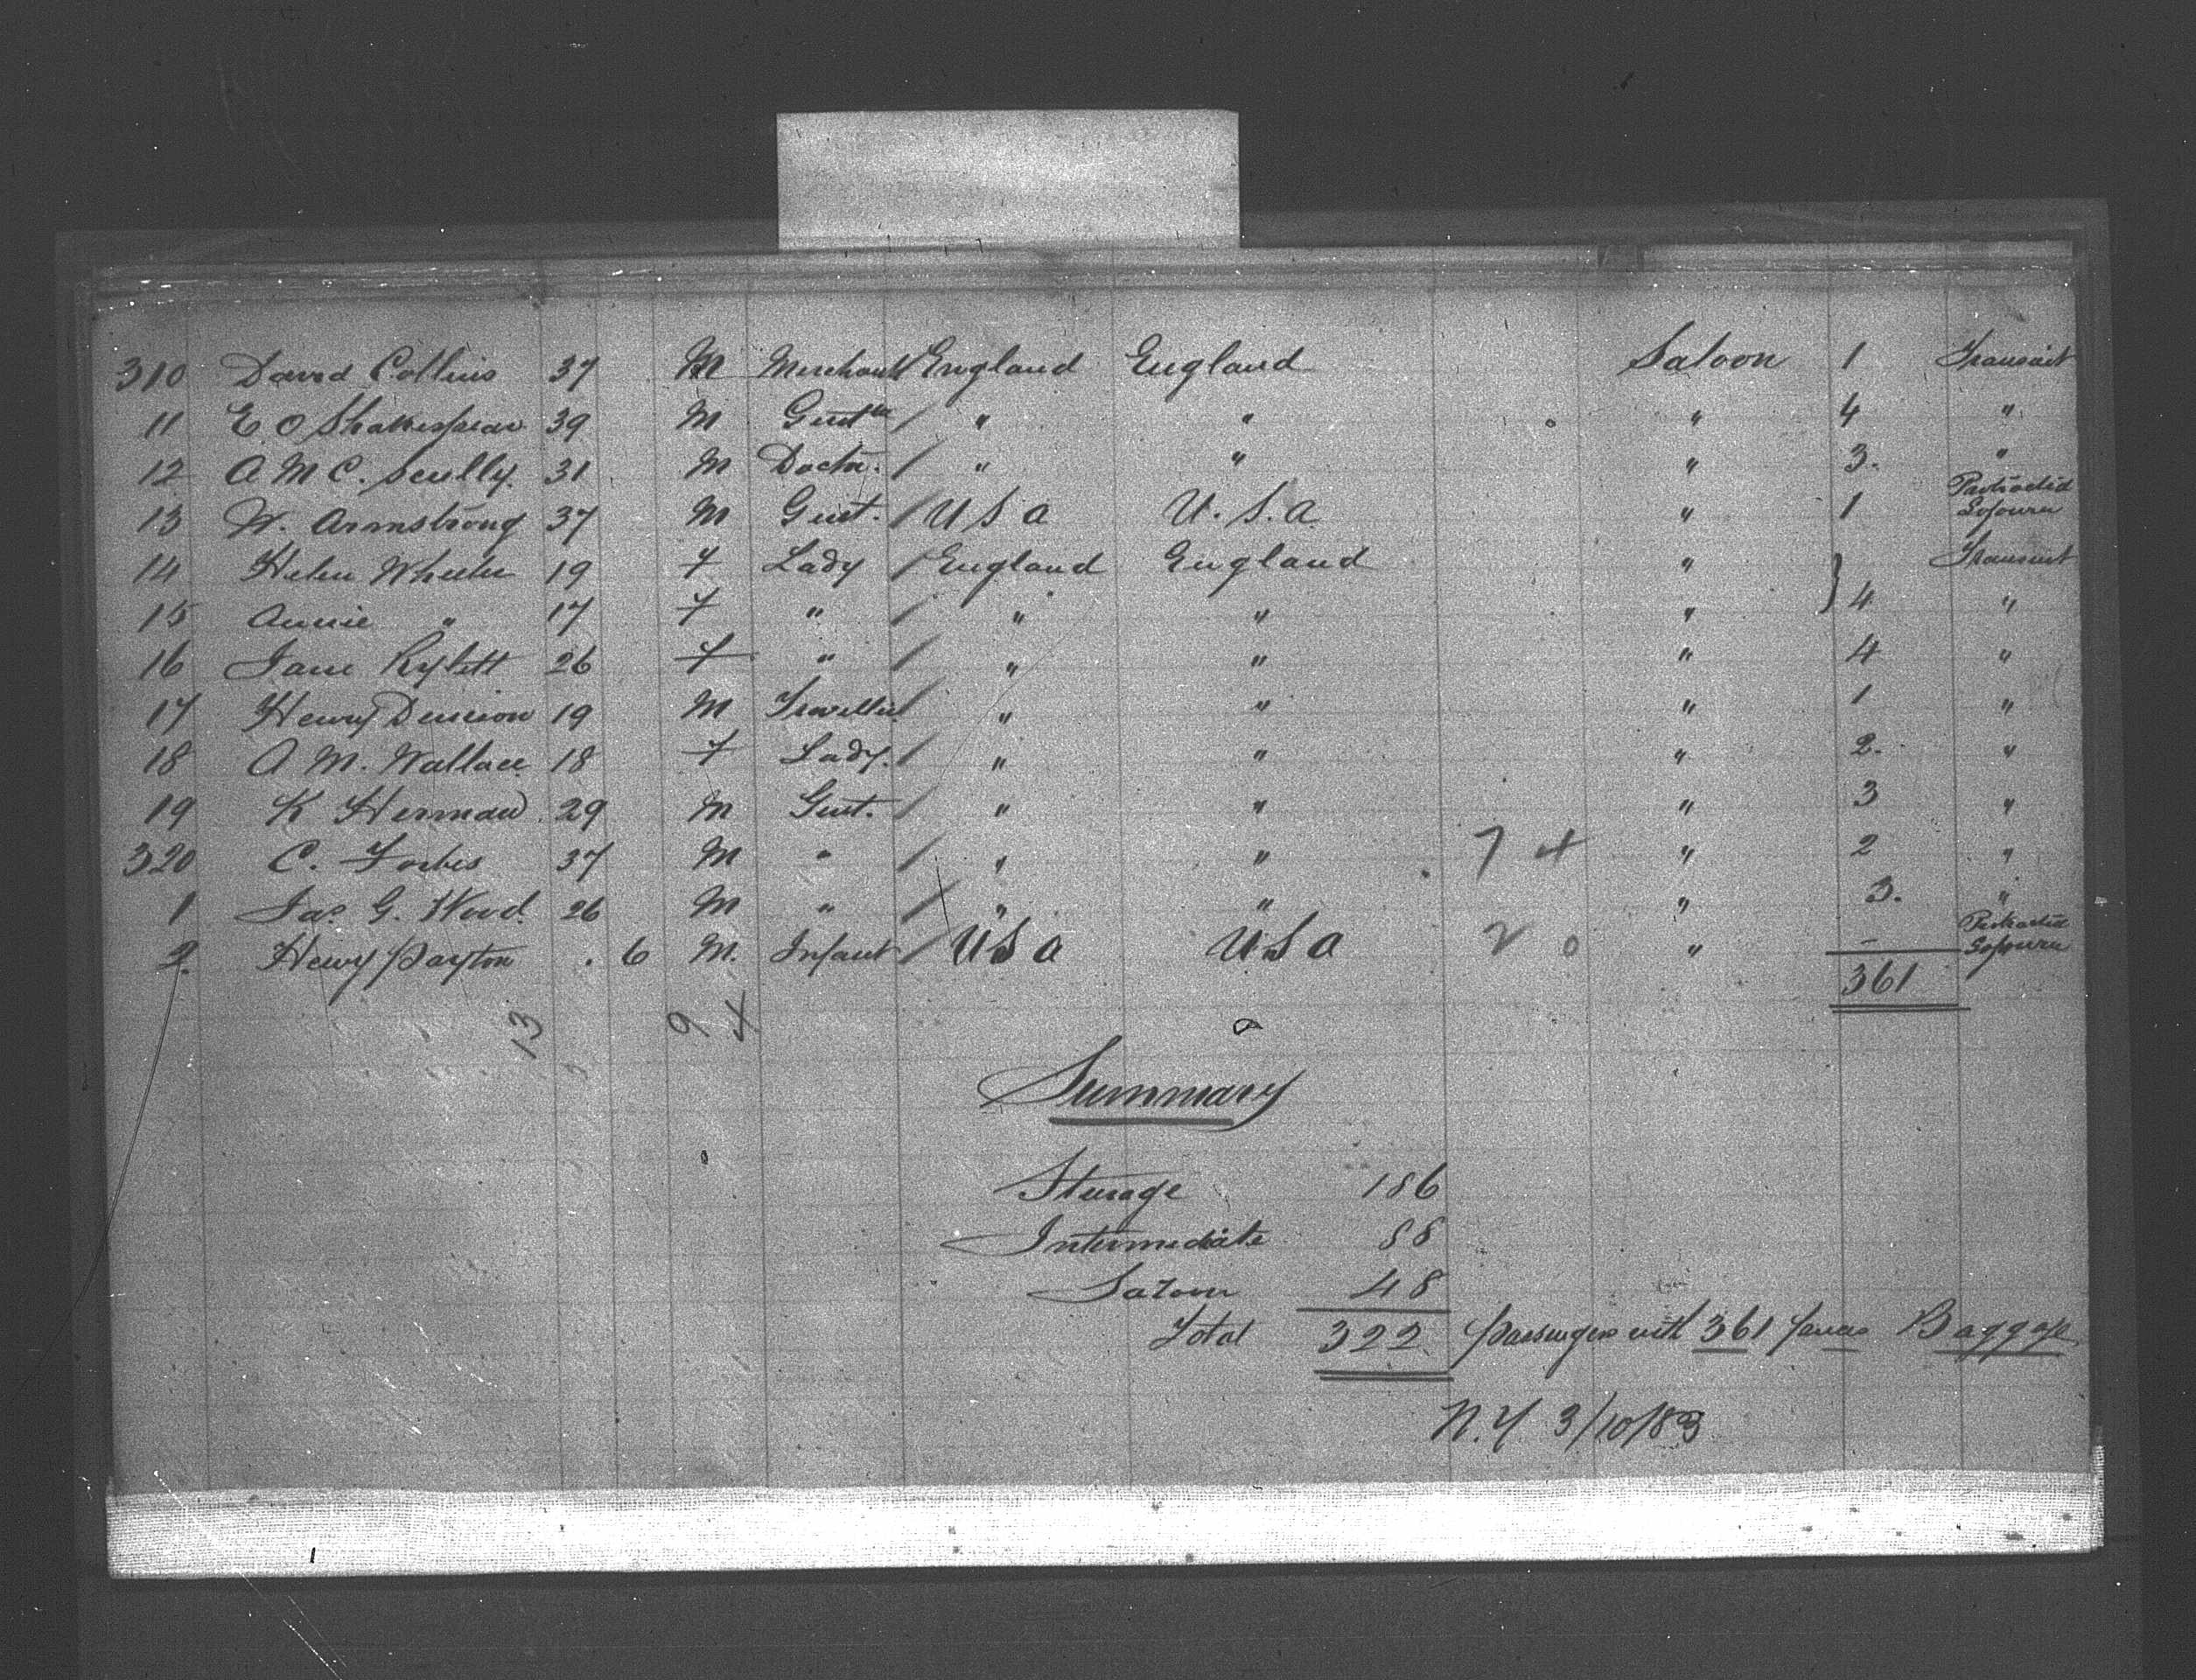 310 David Collins 37 M Merchant England England Saloon 1 Transient
11 E O Shakespear 39 M Gent " " " 4 "
12 A M C. Scully. 31 M Doctr. " " " 3. "
13 W. Armstrong 37 M Gent. U S A U.S.A. " 1 Protracted Sojourn
14 Helen Wheeler 19 F Lady England England " Transient
15 Annie " 17 F " " " " 4 "
16 Jane Rylett 26 F " " " " 4 "
17 Henry Denison 19 M Traveller " " " 1 "
18 A M. Wallace 18 F Lady. " " " 2. "
19 K Herman 29 M Gent. " " " 3 "
320 C. Forbes 37 M " " " 7 4 " 2 "
1 Jas G. Wood. 26 M " " " " 3. "
2. Henry Payton 6 M. Infant U S A U S A 2 0 " - Protracted Sojourn
361
13 9 4
Summary
Sterage 186
Intermediate 88
Saloon 48
Total 322 passengers with 361 Baggage
N.Y. 3/10/83